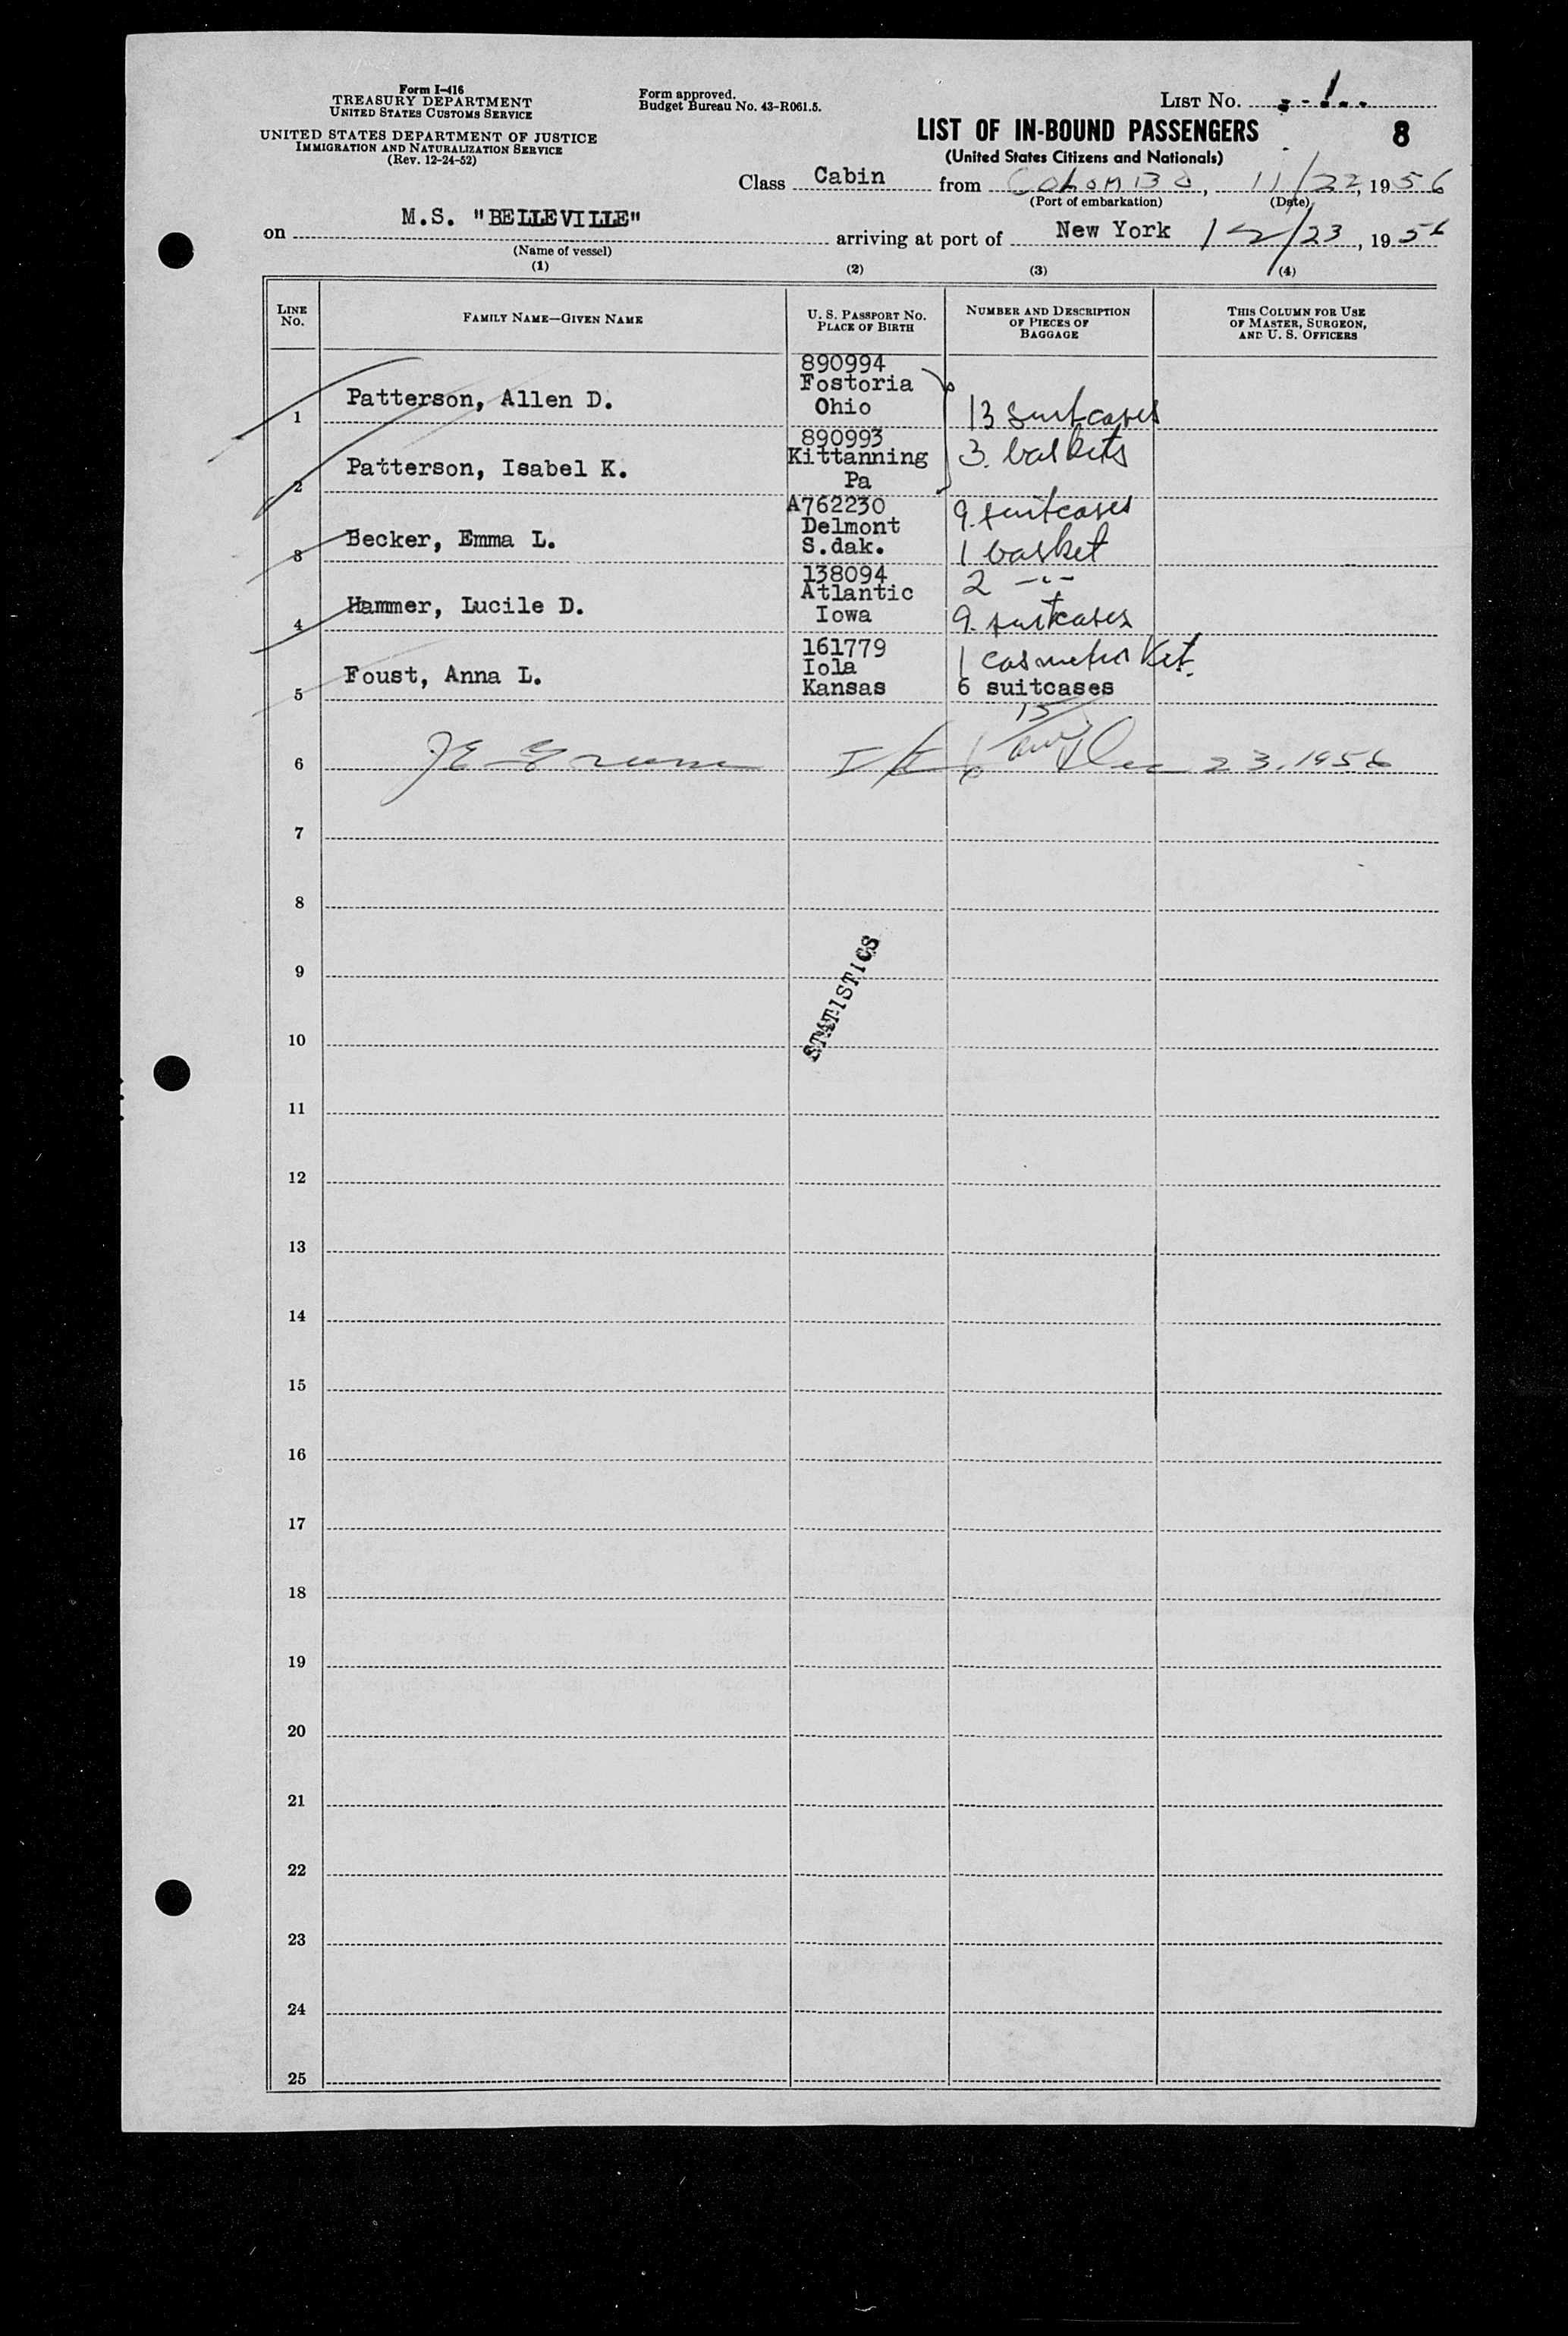 Form I-416
TREASURY DEPARTMENT
UNITED STATES CUSTOMS SERVICE
UNITED STATES DEPARTMENT OF JUSTICE
IMMIGRATION AND NATURALIZATION SERVICE
(Rev. 12-24-52)
Form approved.
Budget Bureau No. 43-R061.5.
LIST No. 1
LIST OF IN-BOUND PASSENGERS 8
(United States Citizens and Nationals)
Class Cabin from COLOMBO, 11/22, 1956
(Port of embarkation) (Date)
on M.S. "BELLEVILLE" arriving at port of New York 12/23, 1956
(Name of vessel)
(1) (2) (3) (4)
LINE No. FAMILY NAME—GIVEN NAME U. S. PASSPORT No. PLACE OF BIRTH NUMBER AND DESCRIPTION OF PIECES OF BAGGAGE THIS COLUMN FOR USE OF MASTER, SURGEON, AND U. S. OFFICERS
1 Patterson, Allen D. 890994 Fostoria Ohio 13 suitcases
2 Patterson, Isabel K. 890993 Kittanning Pa 3 baskets
3 Becker, Emma L. A762230 Delmont S.dak. 9 suitcases 1 basket
4 Hammer, Lucile D. 138094 Atlantic Iowa 2 -"- 9 suitcases
5 Foust, Anna L. 161779 Iola Kansas 1 cosmetic Kit. 6 suitcases
6 Dec 23, 1956
7
8
9
STATISTICS
10
11
12
13
14
15
16
17
18
19
20
21
22
23
24
25